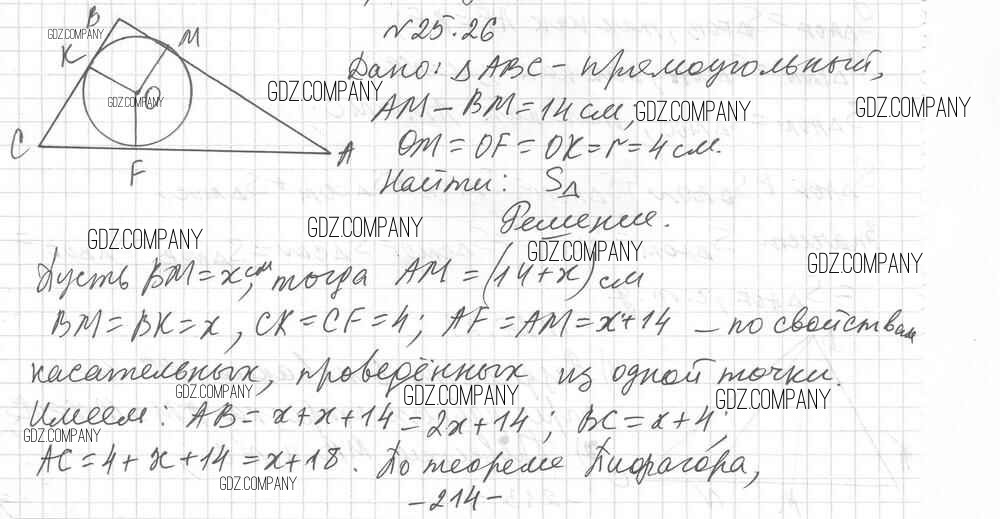 № 25.26
B
M
K
O
C
F
A
Дано: △ABC - прямоугольный,
AM - BM = 14 см;
OM = OF = OK = r = 4 см.
Найти: S△
Решение.
Пусть BM = x см, тогда AM = (14+x) см
BM = BK = x, CK = CF = 4; AF = AM = x+14 - по свойствам
касательных, проведённых из одной точки.
Имеем: AB = x+x+14 = 2x+14; BC = x+4;
AC = 4+x+14 = x+18. По теореме Пифагора,
-214-
GDZ.COMPANY
GDZ.COMPANY
GDZ.COMPANY
GDZ.COMPANY
GDZ.COMPANY
GDZ.COMPANY
GDZ.COMPANY
GDZ.COMPANY
GDZ.COMPANY
GDZ.COMPANY
GDZ.COMPANY
GDZ.COMPANY
GDZ.COMPANY
GDZ.COMPANY